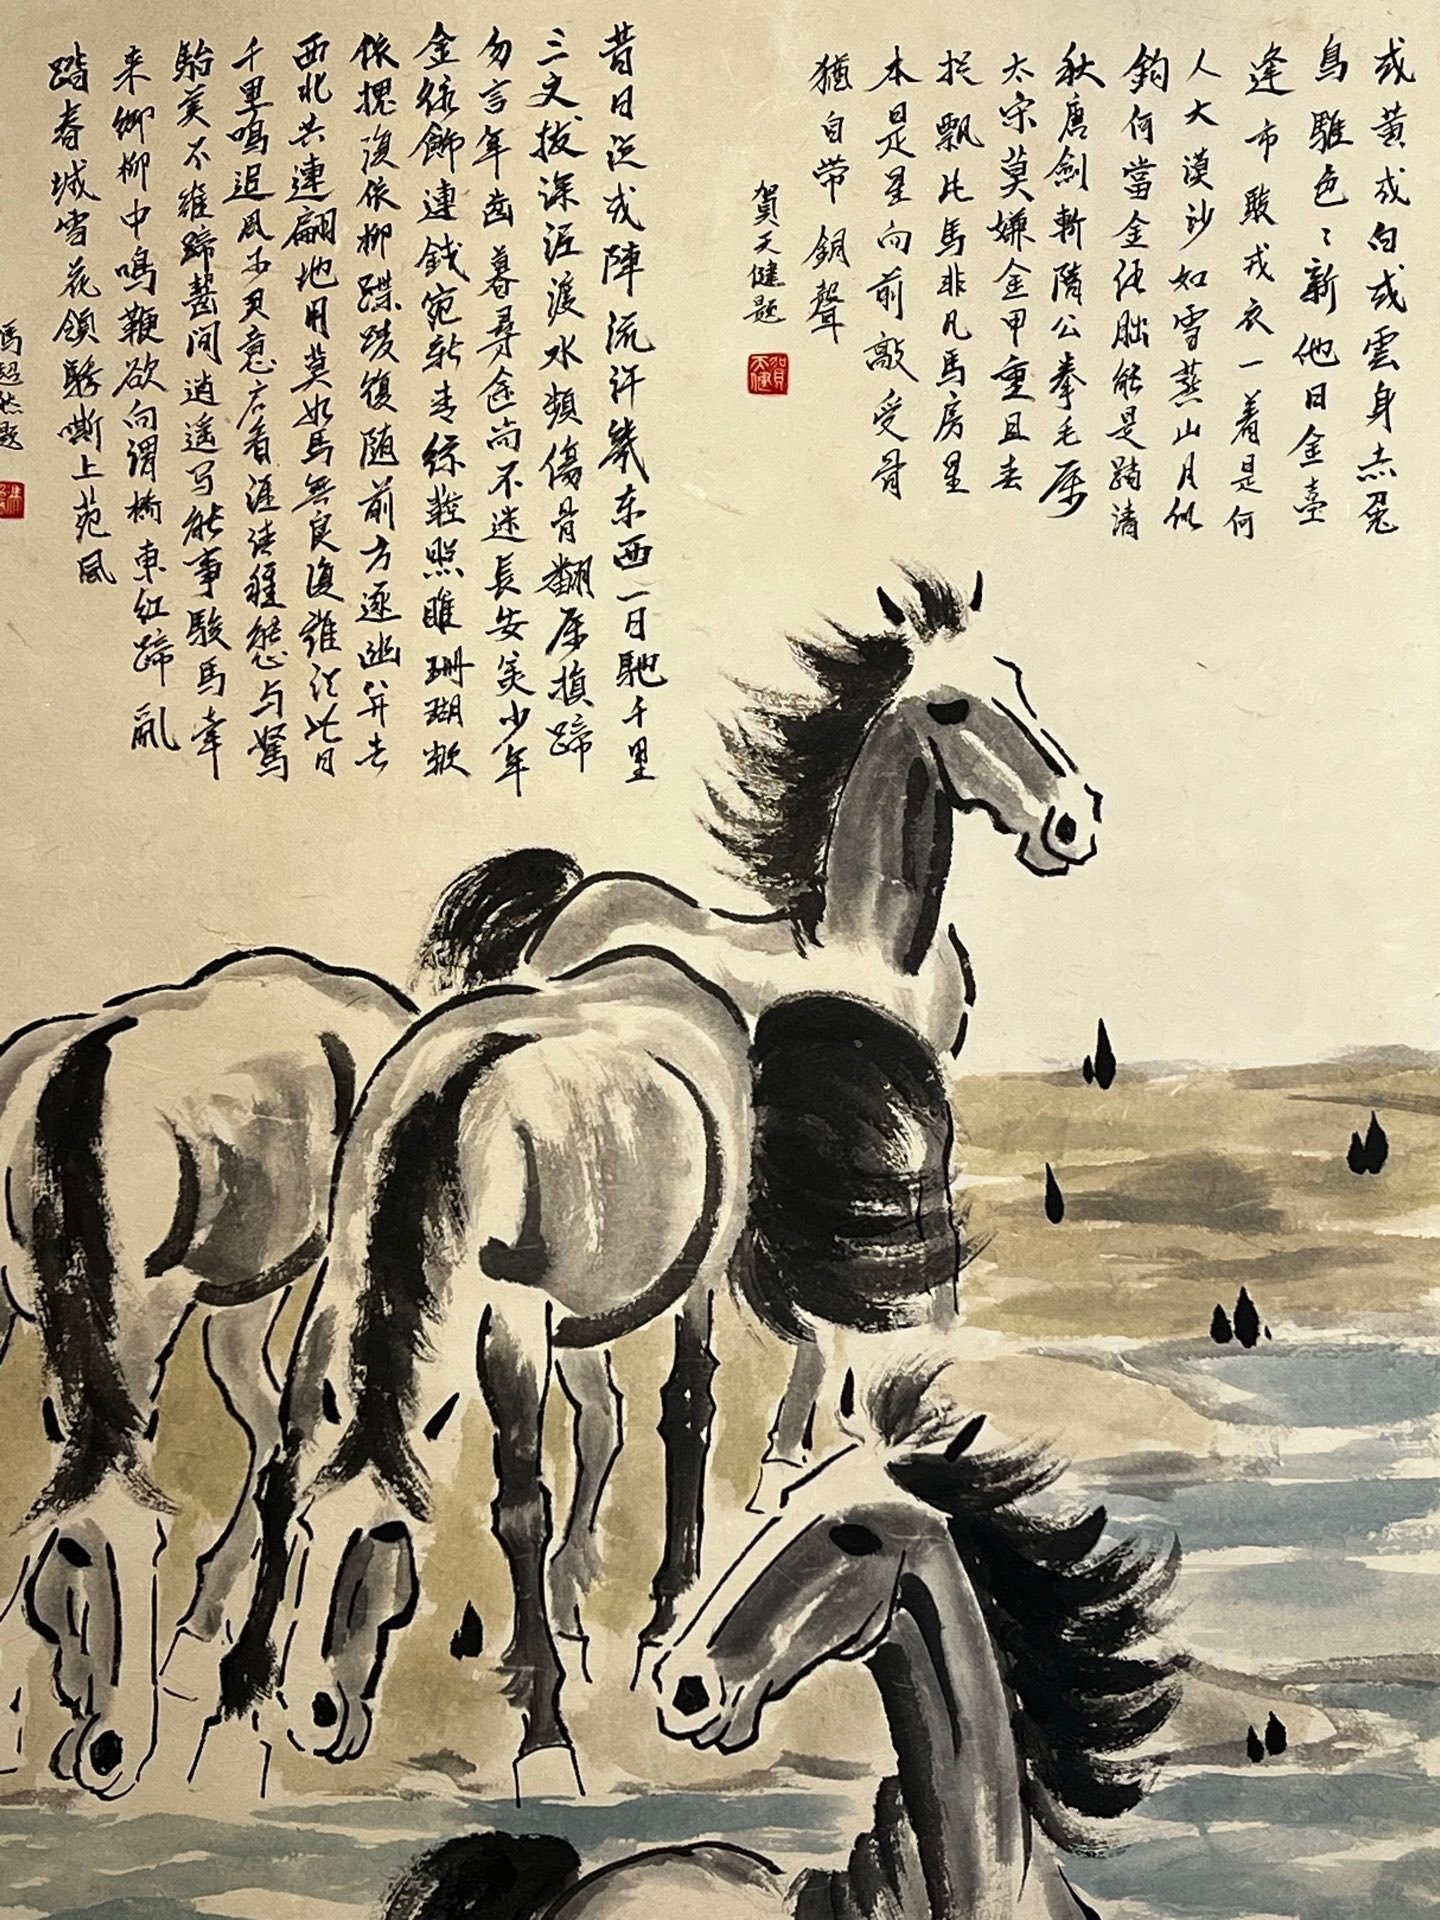 或黄或白或雲身赤兔
烏騅色〻新他日金臺
逢市駿戎衣一着是何
人大漠沙如雪燕山月似
鈎何當金洛腦能是踏清
秋唐劍斬隋公拳毛属
太宗莫嫌金甲重且去
捉飄此馬非凡馬房星
本是星向前敲瘦骨
猶自帶銅聲
賀天健題
賀天健
昔日从戎陣流汗幾东西一日馳千里
三丈拔深泥渡水頻傷骨翻属損蹄
勿言年齒暮尋途尚不迷長安美少年
金絡飾連錢宛
照睢珊瑚鞭
依槐復依柳蹀躞復随前方逐幽并去
西北共連翩地用莫如馬無良復誰 此日
千里鳴追風 意 看 種態与駑
駘美不雜蹄齧間逍遙写能事駿馬牽
来御柳中鳴鞭欲向渭橋東紅蹄亂
踏春城雪花頷驕嘶上苑風
馮超然題